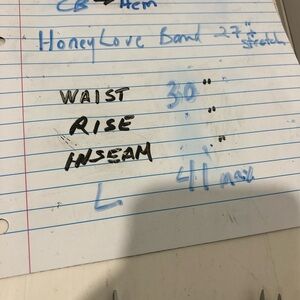 CB → Hem
HoneyLove Band 27"+
stretch
WAIST 30"
RISE "
INSEAM "
L 41 max